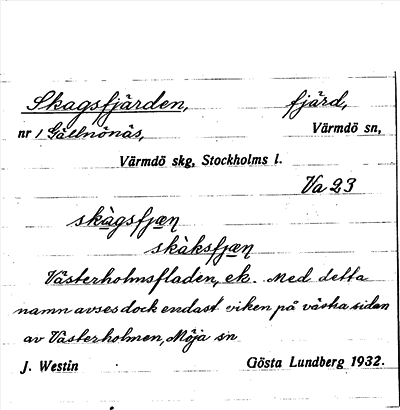 Skagsfjärden, fjärd,
nr 1 Gällnönäs, Värmdö sn,
Värmdö skg, Stockholms l.
Va 23
skàgsfjæn
skàksfjæn
Västerholmsfladen, ek. Med detta
namn avses dock endast viken på västra sidan
av Västerholmen, Möja sn
J. Westin Gösta Lundberg 1932.